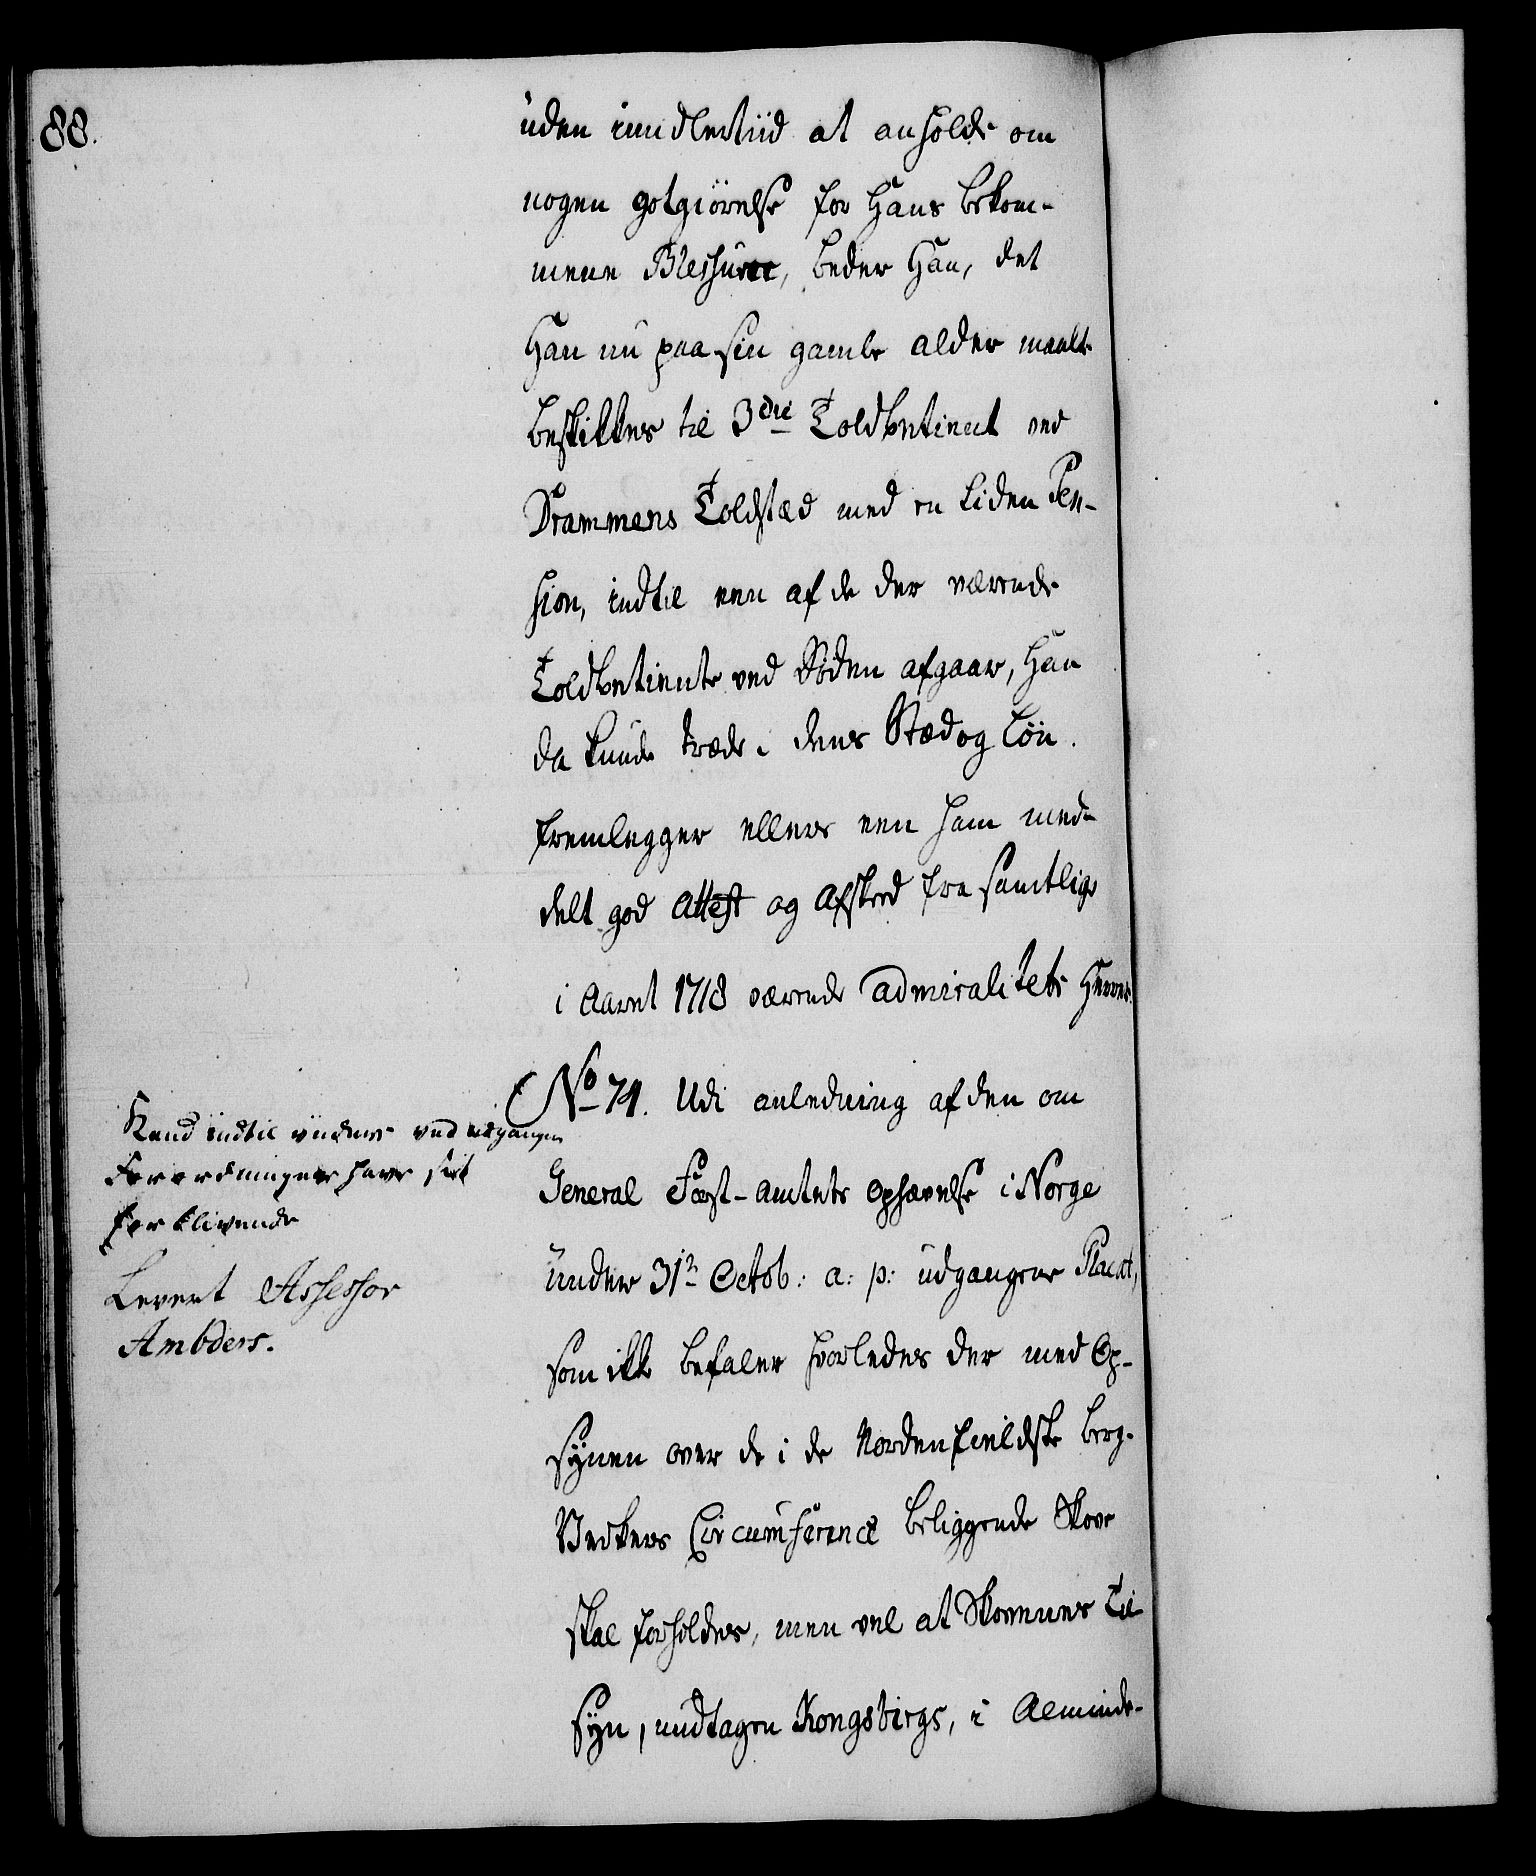 88.
uden imidlertiid at anholde om
nogen gotgiörelse for Hans bekom-
mene Blessure, beder Han, det
Han nu paa sin gamle alder maatte
beskikkes til 3die Toldbetient ved
Drammens Toldsted med en liden Pen-
sion, indtil een af de der værende
Toldbetiente ved Döden afgaar, Han
da kunde træde i dens Stæd og Løn.
fremlegger ellers een ham med-
delt god Attest og Afskeed fra samtlige
i Aaret 1718 værende Admiralitets Herrer
No 74. Udi anledning af den om
General Forst-amtets Ophævelse i Norge
under 31te Octob: a: p: udgangene Placat,
som ikke befaler hvorledes der med Op-
synen over de i de Nordenfieldske berg-
Verkers Circumference beliggende Skove
skal forholdes, men vel at Skovenes Til
syn, undtagen Kongsbergs, i Alminde-
Kand indtil videre ved udgangen
Forordninger have sit
forblivende
Levert Assessor
Ambders.